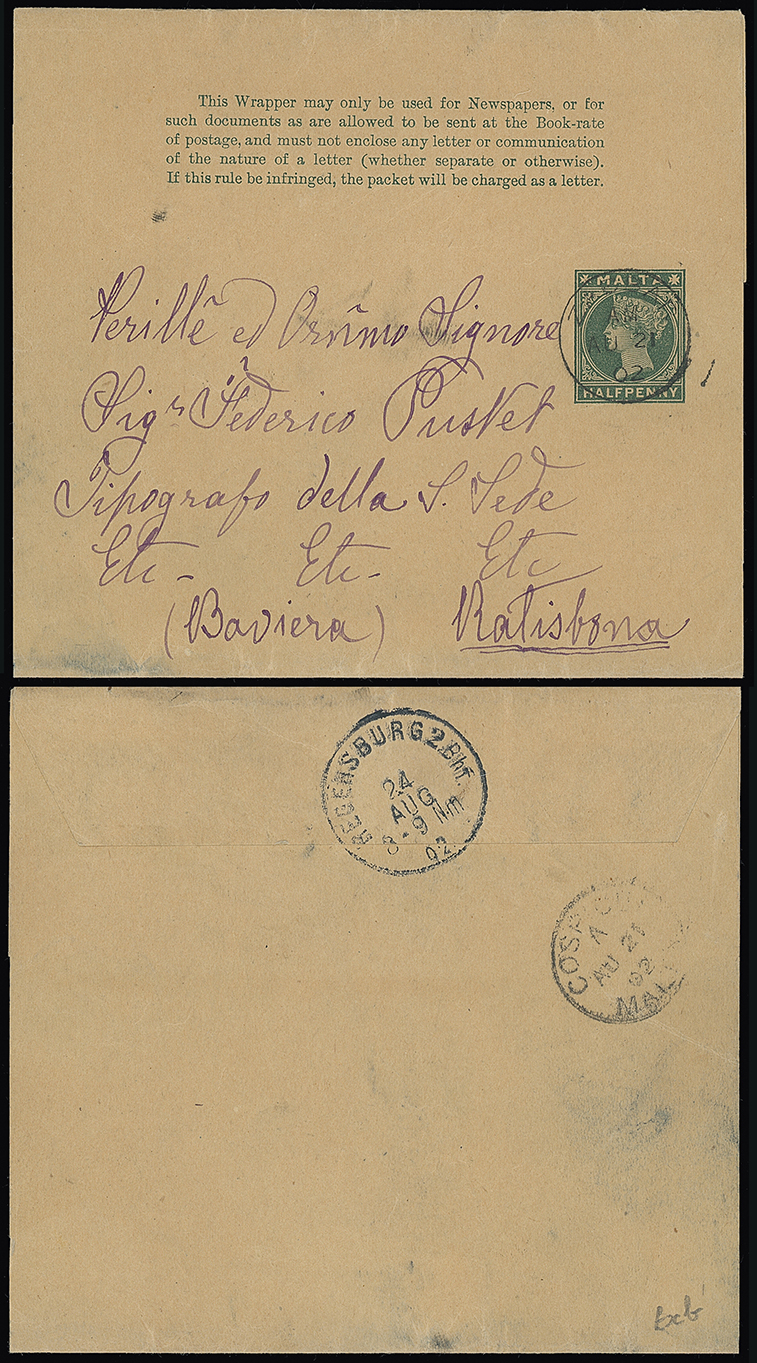 This Wrapper may only be used for Newspapers, or for
such documents as are allowed to be sent at the Book-rate
of postage, and must not enclose any letter or communication
of the nature of a letter (whether separate or otherwise).
If this rule be infringed, the packet will be charged as a letter.
MALTA
HALFPENNY
AM
AU 21
02
ed Signore
Sigr Federico Pustet
Tipografo della S. Sede
Etc - Etc - Etc
(Baviera) Ratisbona
REGENSBURG 2. Bhf.
24
AUG
8-9 Nm
02
A
AU 21
02